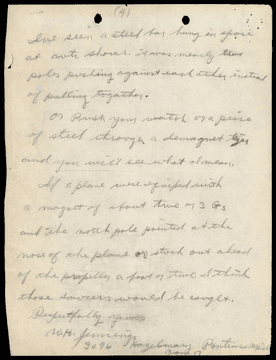 (4)
I've seen a steel bar hung in space
at auto shows. it was merely two
poles pushing against each other instead
of pulling together.
Or Push your watch or a piece
of steel through a demagnetizer
and you will see what I mean.
If a plane were equiped with
a magnet of about two or 3 Gs
and the north pole pointed at the
nose of the plane or stuck out ahead
of the propeller a foot or two I think
those sawcers would be caught.
Respectfully yours
W.H.
3096 Pontiac Mich